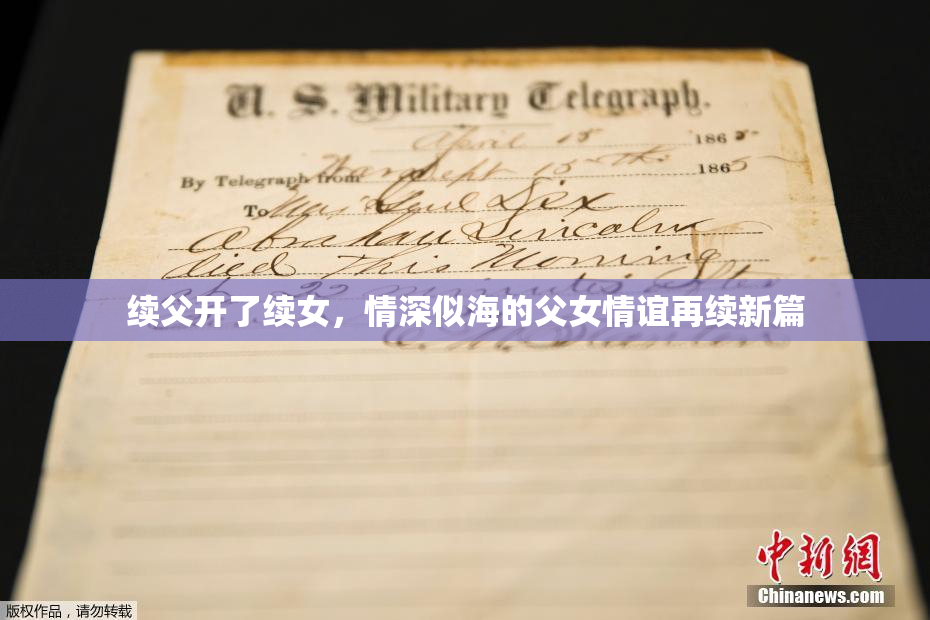 U. S. Military Telegraph.
April 15 1865
By Telegraph from War Dept 15th 1865
To Maj Genl Dix
Abraham Lincoln
died This Morning
22 minutes after
续父开了续女，情深似海的父女情谊再续新篇
E. M. Stanton
中新網
Chinanews.com
版权作品，请勿转载